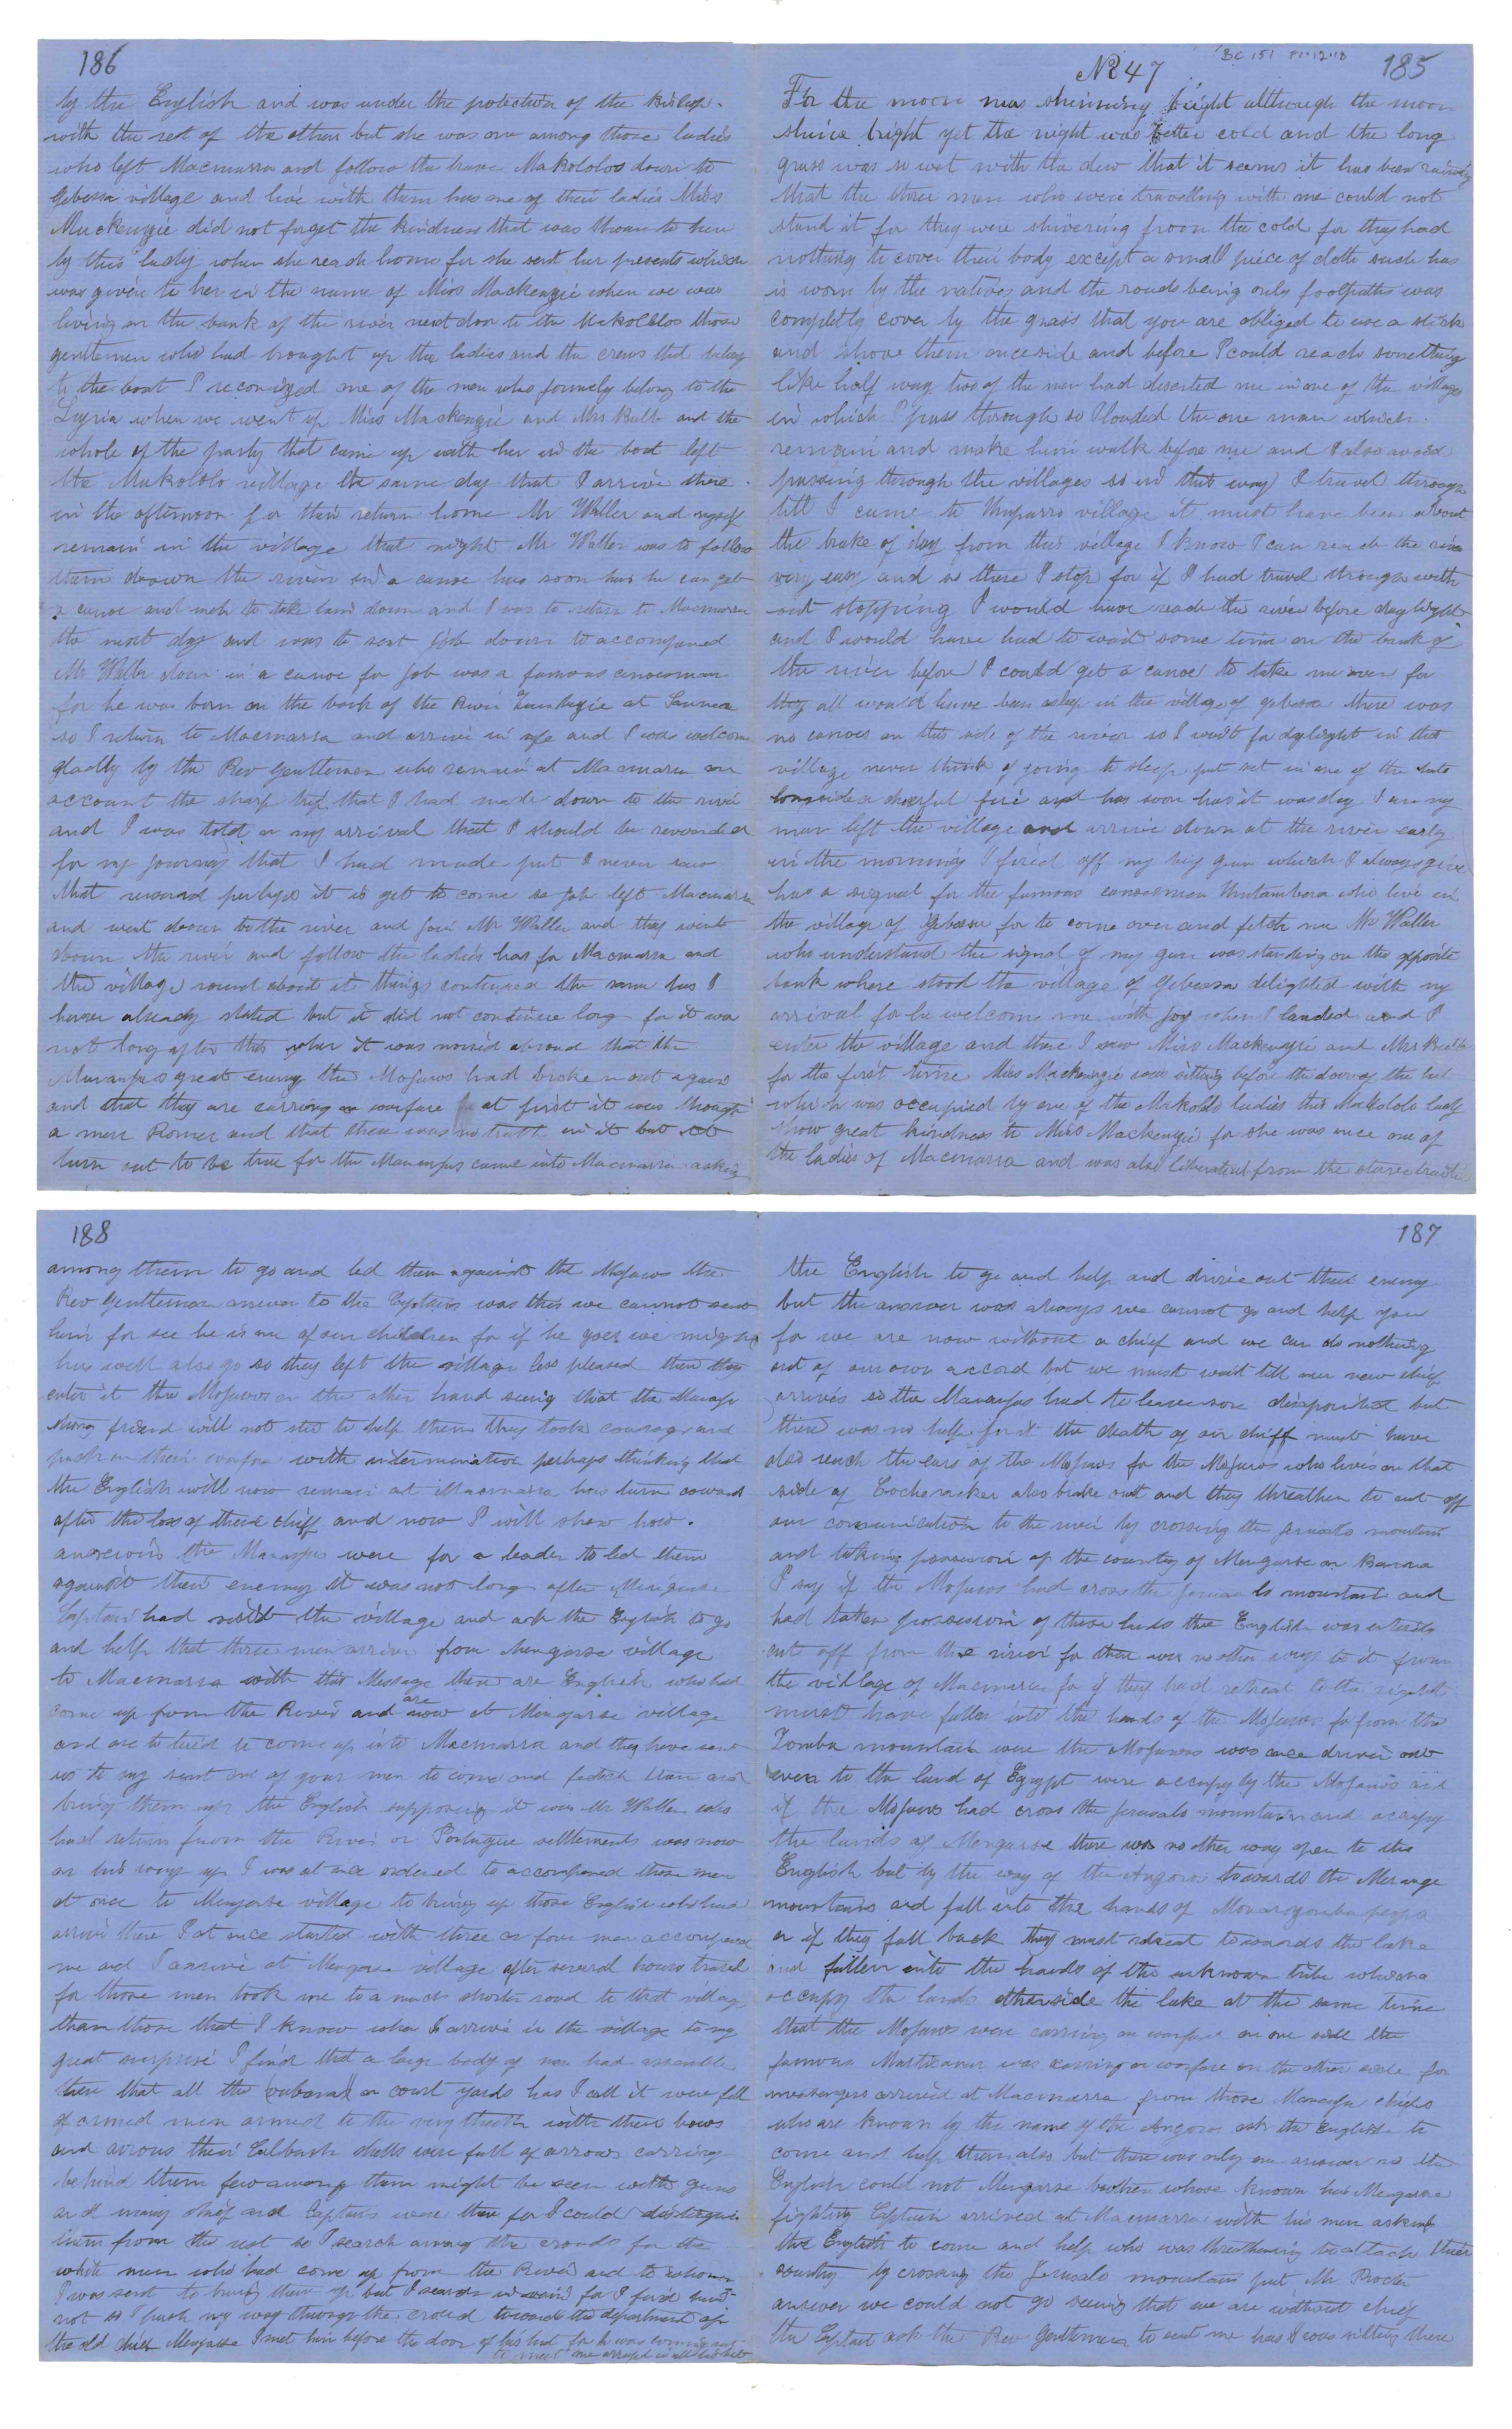 No 47
BC 151
185
For the moon was shinning bright although the moon
shine bright yet the night was better cold and the long
grass was so wet with the dew that it seems it has been raining
that the three men who were travelling with me could not
stand it for they were shivering from the cold for they had
nothing to cover their body except a small piece of cloth such has
is worn by the natives and the roads being only footpaths was
completly cover by the grass that you are obliged to use a stick
and shove them oneside and before I could reach something
like half way two of the men had deserted me in one of the villages
in which I pass through so I loaded the one man which
remain and make him walk before me and I also avoid
passing through the villages so in this way I travel through
till I came to village it must have been about
the brake of day from this village I know I can reach the river
very easy and so there I stop for if I had travel through with
out stopping I would have reach the river before daylight
and I would have had to wait some time on the bank of
the river before I could get a canoe to take me over for
they all would have been asleep in the village of Gebessa there was
no canoes on this side of the river so I wait for daylight in that
village never think of going to sleep put set in one of the huts
longside a cheerful fire and has soon has it was day I an my
man left the village and arrive down at the river early
in the morning I fired off my big gun which I always give
has a signal for the famous canoeman who live in
the village of Gebessa for to come over and fetch me Mr Waller
who understand the signal of my gun was standing on the opposite
bank where stood the village of Gebessa delighted with my
arrival for he welcome me with joy when I landed and I
enter the village and there I saw Miss Mackenzie and Mrs
for the first time Miss Mackenzie was sitting before the door of the hut
which was occupied by one of the Makololo ladies this Makololo lady
show great kindness to Miss Mackenzie for she was once one of
the ladies of Macmarra and was also liberated from the
186
by the English and was under the potection of the Bishop
with the rest of the others but she was one among those ladies
who left Macmarra and follow the brave Makololos down to
Gebessa village and live with them has one of their ladies Miss
Mackenzie did not forget the kindness that was shown to her
by this lady when she reach home for she sent her presents which
was given to her in the name of Miss Mackenzie when we was
living on the bank of the river next door to the Makololos those
gentemen who had brought up the ladies and the crews that belong
to the boat I reconized one of the men who formely belong to the
Lyria when we went up Miss Mackenzie and Mrs and the
whole of the party that came up with her in the boat left
the Makololo village the same day that I arrive there
in the afternoon for their return home Mr Waller and myself
remain in the village that night Mr Waller was to follow
them down the river in a canoe has soon has he can get
a canoe and men to take him down and I was to return to Macmarra
the next day and was to sent Job down to accompaned
Mr Waller down in a canoe for Job was a famous canoeman
for he was born on the bank of the River at
so I return to Macmarra and arrive in safe and I was welcome
gladly by the Rev gentlemen who remain at Macmarra on
account the sharp trip that I had made down to the river
and I was told on my arrival that I should be rewarded
for my journey that I had made put I never saw
that reward perhaps it is yet to come so Job left Macmarra
and went down to the river and join Mr Waller and they went
down the river and follow the ladies has for Macmarra and
the village round about it things continued the same has I
have already stated but it did not continue long for it was
not long after this when it was noised abroad that the
great enemy the had broken out again
and that they are carring on warfare at first it was though
a mere Romer and that there was no truth in it but it
turn out to be true for the came into Macmarra asking
187
the English to go and help and drive out their enemy
but the answer was always we cannot go and help you
for we are now without a chief and we can do nothing
out of our own accord but we must wait till our new chief
arrives so the had to leave sore disapointed but
there was no help for it the death of our chiff must have
also reach the ears of the for the who lives on that
side of also brake out and they threathen to cut off
our comunication to the river by crossing the mountain
and taking possession of the country of Mengasse or
I say if the had cross the mountain and
had taken possession of these lands the English was entirely
cut off from the river for there was no other way to it from
the village of Macmarra for if they had retreat to the right
must have fallen into the hands of the for from the
Zomba mountain were the was once driven out
even to the land of Egypt were occupy by the and
if the had cross the mountain and occupy
the lands of Mengasse there was no other way open to the
English but by the way of the towards the
mountains and fall into the hands of people
or if they fall back they must retreat towards the lake
and fallen into the hands of the unknown tribe who
occupy the lands otherside the lake at the same time
that the were carring on warfare on one side the
famous was carring on warfare on the other side for
messengers arrived at Macmarra from those chiefs
who are known by the name of the ask the English to
come and help them also but there was only one answer no the
English could not Mengasse brother whose known has Mengasse
fighting Captain arrived at Macmarra with his men asking
the English to come and help who was threathening to attack their
country by crossing the mountain put Mr Procter
answer we could not go seeing that we are without chief
the Captain ask the Rev Gentlemen to sent me has I was sitting there
188
among them to go and led them against the the
Rev Gentleman answer to the Captain was this we cannot sent
him for see he is one of our children for if he goes we might
has well also go so they left the village less pleased then they
enter it the on the other hand seeing that the
strong friend will not to help them they took courage and
push on their warfare with intermination perhaps thinking that
the English will now remain at Macmarra has turn coward
after the loss of their chiff and now I will show how
anxcious the were for a leader to led them
against their enemy it was not long after Mengasse
Captain had the village and ask the English to go
and help that three men arrive from Mengasse village
to Macmarra with this Message there are English who had
come up from the River and are now at Mengasse village
and are to tired to come up into Macmarra and they have sent
us to say sent one of your men to come and fetch them and
bring them up the English supposing it was Mr Waller who
had return from the River or Portuguese settlements was now
on his way up I was at once ordered to accompaned those men
at once to Mengasse village to bring up those English who had
arrive there I at once started with three or four men accompaned
me and I arrive at Mengasse village after several hours travel
for those men took me to a much shorter road to that village
than those that I know when I arrive in the village to my
great surprise I find that a large body of men had assemble
there that all the or court yards has I call it were full
of armed men armed to the very theeth with their bows
and arrows their Calbash shells were full of arrows carring
behind them few among them might be seen with guns
and many chief and Captains were there for I could
them from the rest so I search among the crowds for the
white men who had come up from the River and to whom
I was sent to bring them up but I search in vain for I find
not so I push my way through the crowd towards the department of
the old chief Mengasse I met him before the door of his hut for he was coming out
to meet me